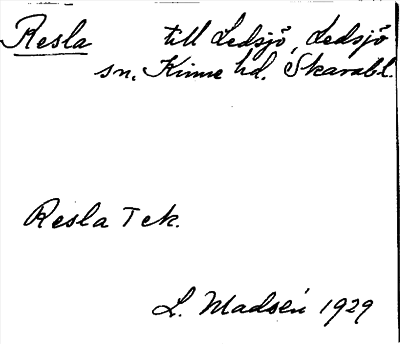 Resla till Ledsjö, Ledsjö
sn. Kinne hd. Skarabl.
Resla Tek.
L. Madsén 1929